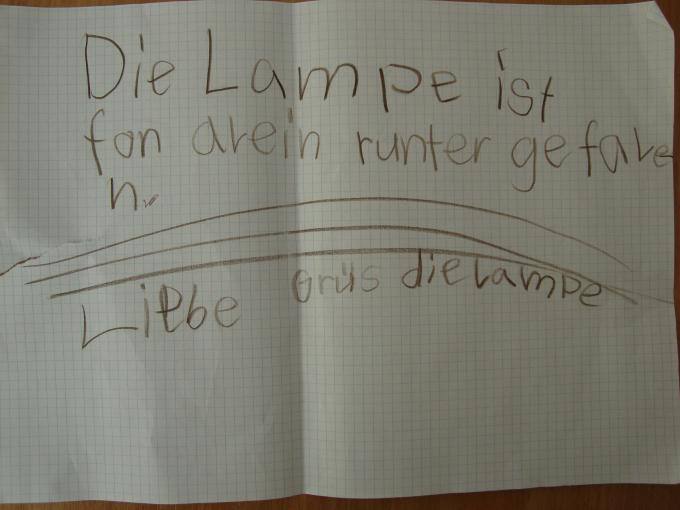 Die Lampe ist
fon arein runter gefare
n.
Liebe Grüs die Lampe